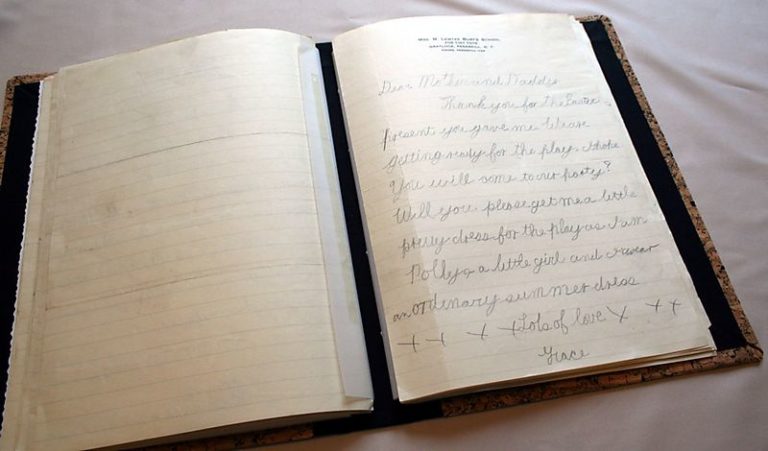 Dear Mother and Daddy
Thank you for the Easter
present you gave me. We are
getting ready for the play. I hope
you will come to our party?
Will you please get me a little
pretty dress for the play as I am
Polly a little girl and I wear
an ordenary summer dress
x x x x Lots of love x x x
Grace